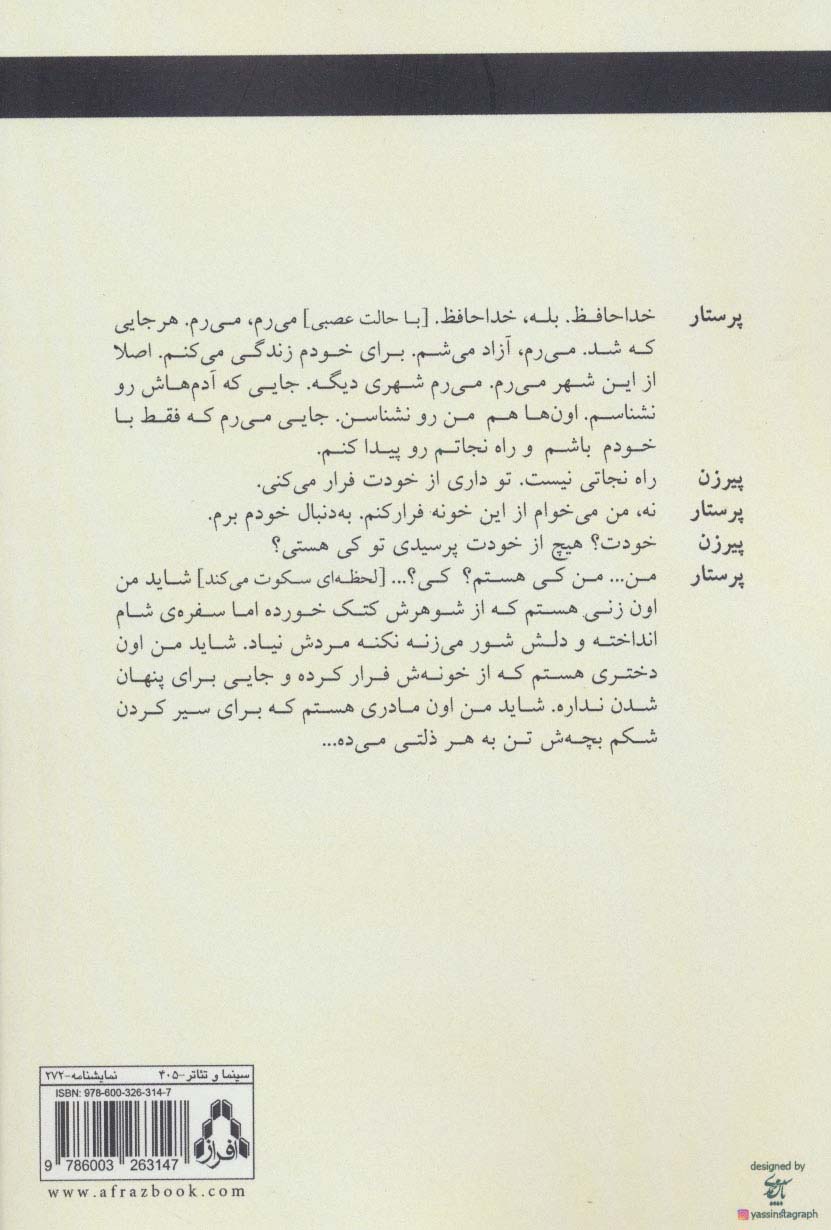 پرستار خداحافظ. بله، خداحافظ. [با حالت عصبی] می‌رم، می‌رم. هرجایی
که شد. می‌رم، آزاد می‌شم. برای خودم زندگی می‌کنم. اصلا
از این شهر می‌رم. می‌رم شهری دیگه. جایی که آدم‌هاش رو
نشناسم. اون‌ها هم من رو نشناسن. جایی می‌رم که فقط با
خودم باشم و راه نجاتم رو پیدا کنم.
پیرزن راه نجاتی نیست. تو داری از خودت فرار می‌کنی.
پرستار نه، من می‌خوام از این خونه فرارکنم. به‌دنبال خودم برم.
پیرزن خودت؟ هیچ از خودت پرسیدی تو کی هستی؟
پرستار من... من کی هستم؟ کی؟... [لحظه‌ای سکوت می‌کند] شاید من
اون زنی هستم که از شوهرش کتک خورده اما سفره‌ی شام
انداخته و دلش شور می‌زنه نکنه مردش نیاد. شاید من اون
دختری هستم که از خونه‌ش فرار کرده و جایی برای پنهان
شدن نداره. شاید من اون مادری هستم که برای سیر کردن
شکم بچه‌ش تن به هر ذلتی می‌ده...
سینما و تئاتر-۴۰۵ نمایشنامه-۲۷۲
ISBN: 978-600-326-314-7
افراز
9 786003 263147
www.afrazbook.com
designed by
yassinstagraph